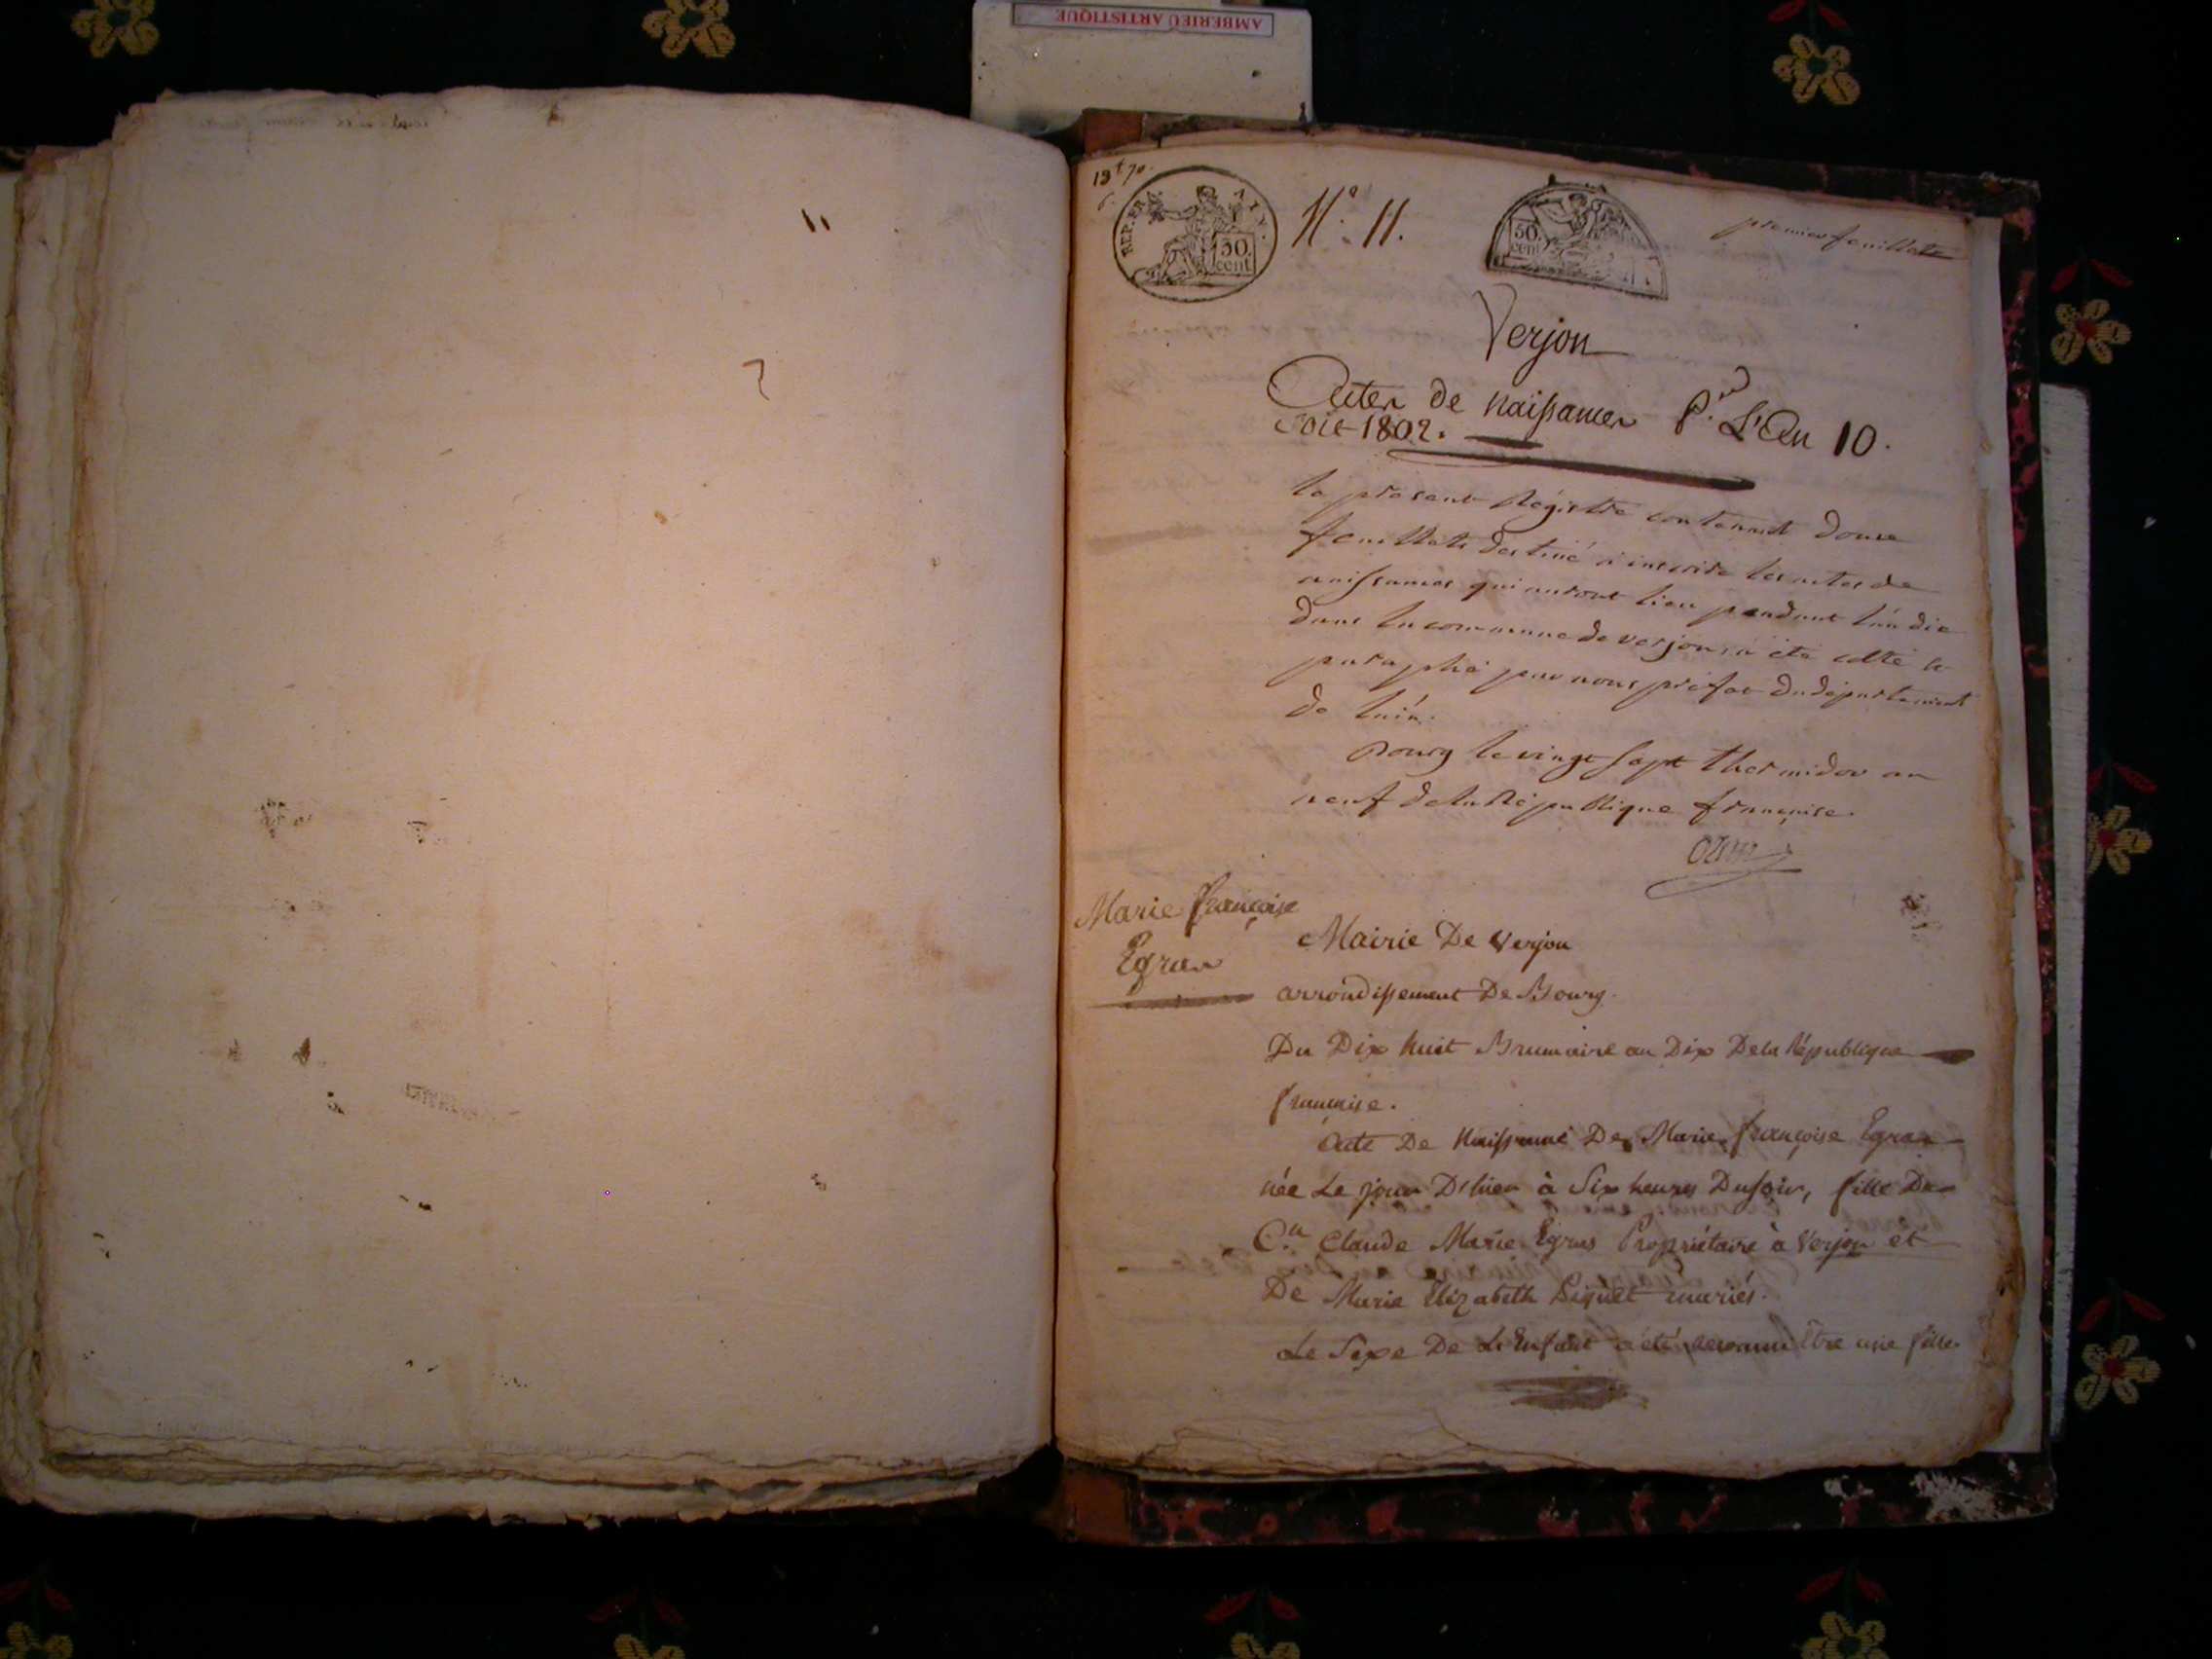 AMBERIEU ARTISTIQUE
REP. FRA. AIN.
50. cent.
N.º 11.
50. cent
premier feuillet
Verjon
Actes de Naissances P.r L'An 10.
Soit 1802.
le present Régistre contenant douze
feuillets destiné à inscrire les actes de
naissances qui auront lieu pendant l'an dix
dans la commune de verjon, a été cotté et
paraphé par nous préfet du département
de l'ain.
Bourg le vingt sept thermidor an
neuf de la République française.
Marie françoise
Egras
Mairie De Verjon
arrondissement De Bourg.
Du Dix huit Brumaire an Dix De la République
française.
Acte De Naissance De Marie françoise Egras
née Le jour D'hier à Six heures Du soir, fille Du
C.en Claude Marie Egras Propriétaire à Verjon et
De Marie Elizabeth mariés.
Le Sexe De L'Enfant a été reconnu Être une fille